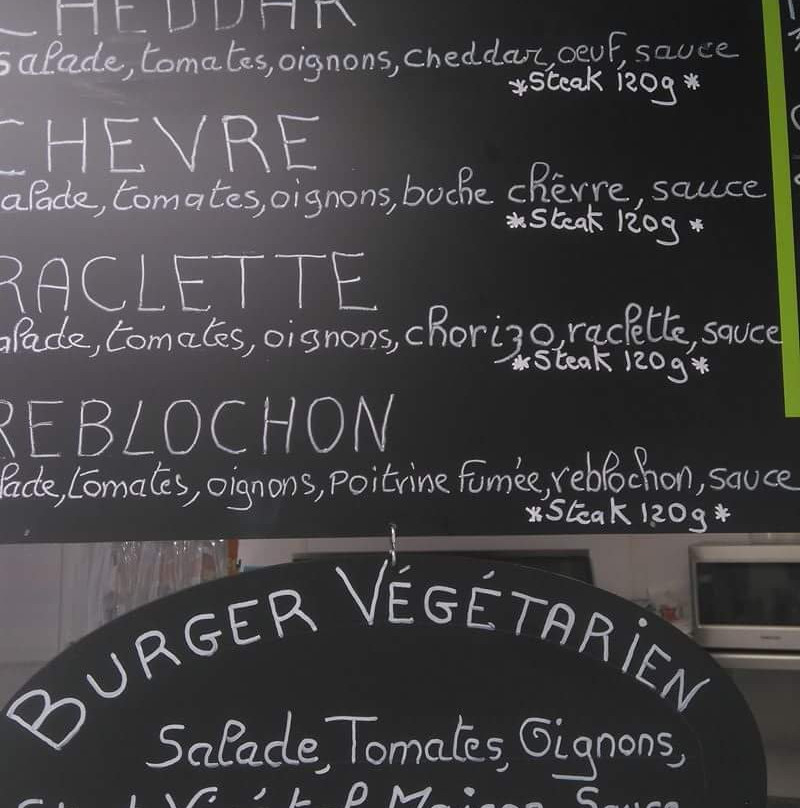 CHEDDAR
Salade, tomates, oignons, cheddar, oeuf, sauce
*Steak 120g*
CHEVRE
alade, tomates, oignons, buche chêvre, sauce
*Steak 120g*
RACLETTE
alade, tomates, oignons, chorizo, raclette, sauce
*Steak 120g*
REBLOCHON
lade, tomates, oignons, Poitrine Fumée, reblochon, sauce
*Steak 120g*
BURGER VÉGÉTARIEN
Salade, Tomates, Oignons,
Maison, Sauce